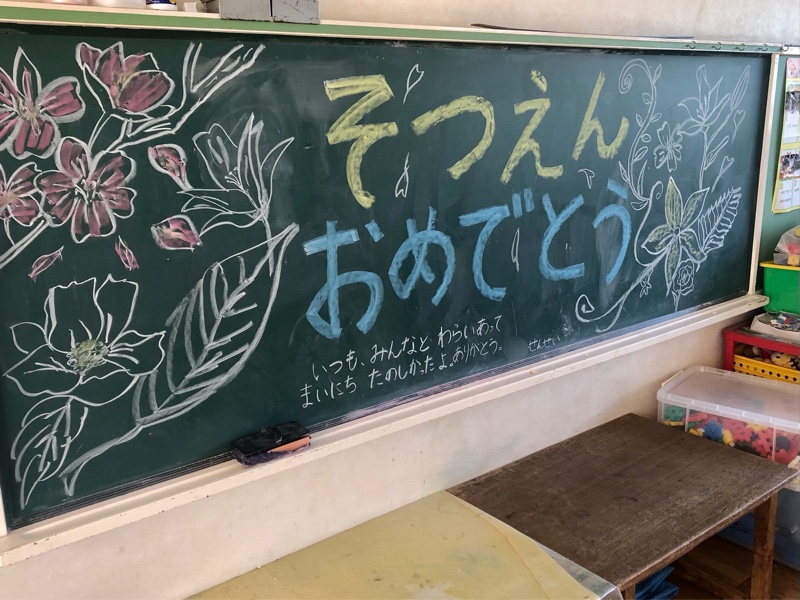 そつえん
おめでとう
いつも、みんなと わらいあって
まいにち たのしかったよ。ありがとう。
せんせい